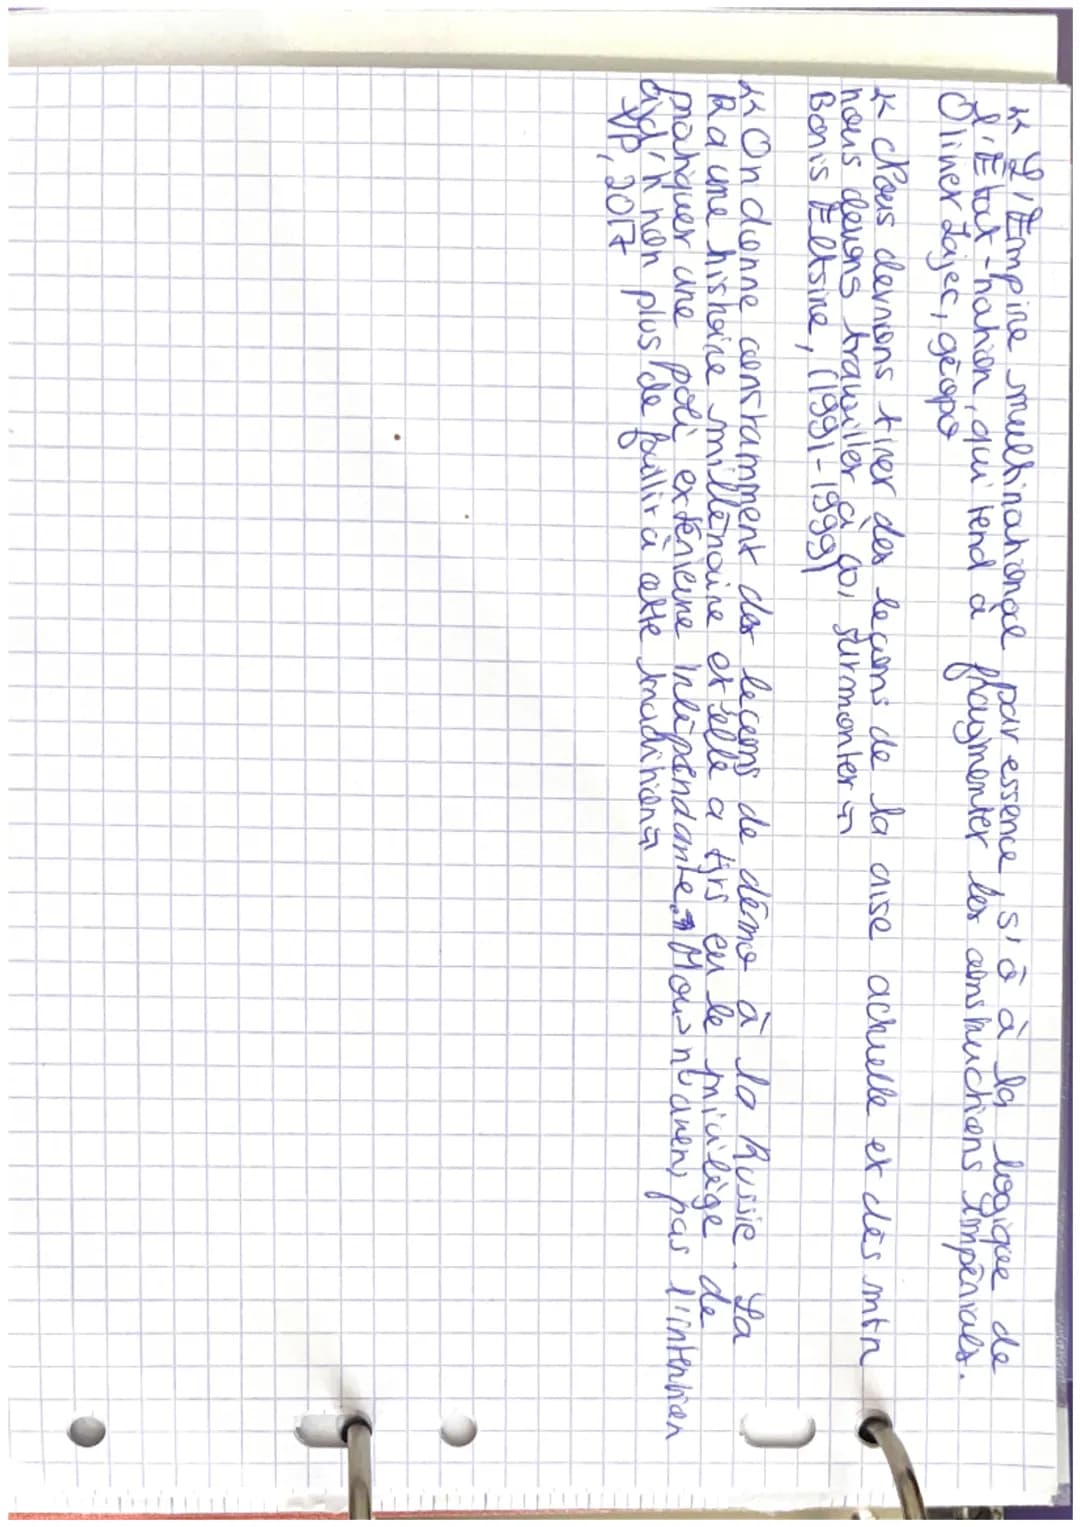 « L'Empire multinational par essence, s'ô à la logique de
l'État-nation, qui tend à fragmenter les constructions impériales.
Oliver Zajec, géopo
« Nous devrions tirer des leçons de la crise actuelle et dès mtn
nous devons travailler à ço, surmonter »
Boris Eltsine, (1991-1999)
« On donne constamment des leçons de démo à la Russie. La
R a une histoire millénaire et elle a tjrs eu le privilège de
pratiquer une poli extérieure indépendante. Nous n'avons pas l'intention
ajd'h non plus de faillir à cette tradition »
VP, 2017